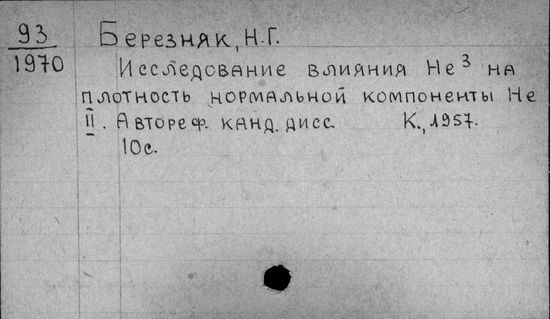 93
1970
Березняк, Н.Г.
Исследование влияния He³ на
плотность нормальной компоненты He
II. Автореф. канд. дисс. К., 1957.
10с.